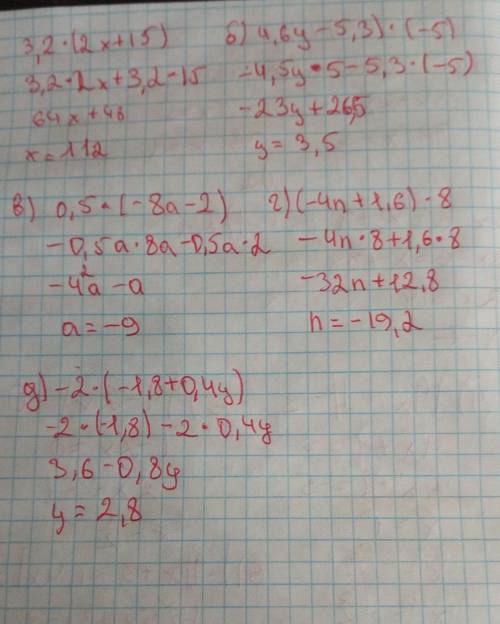 3,2·(2x+15)
3,2·2x+3,2·15
64x+48
x=112
б) 4,6y-5,3)·(-5)
-4,5y·5-5,3·(-5)
-23y+26,5
y=3,5
в) 0,5·(-8a-2)
-0,5a·8a-0,5a·2
-4²a-a
a=-9
г) (-4n+1,6)·8
-4n·8+1,6·8
-32n+12,8
n=-19,2
д) -2·(-1,8+0,4y)
-2·(-1,8)-2·0,4y
3,6-0,8y
y=2,8